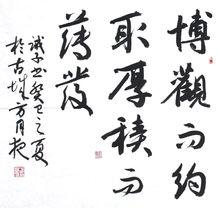 博觀而約
取厚積而
薄發
诚子書癸巳之夏
於古城方月夜